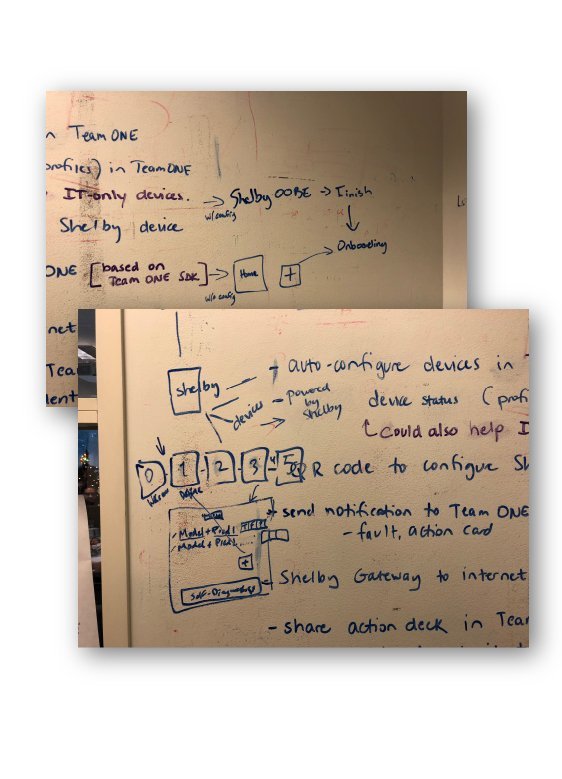 n Team ONE
profiles) in Team ONE
IT-only devices. → Shelby OOBE → Finish
w/ config
Shelby device
Onboarding
ONE [based on
Team ONE SDK] → Home +
w/o config
net
Tea
ent
Shelby
- auto-configure devices in T
devices - powered
by
Shelby
device status (profi
Could also help I
0 1 2 3 4 5
QR code to configure Sh
Welcome
send notification to Team ONE
- fault, action card
Model + Pred 1
Model + Pred 1
+
Self-Diagnostics
Shelby Gateway to internet
- share action deck in Team